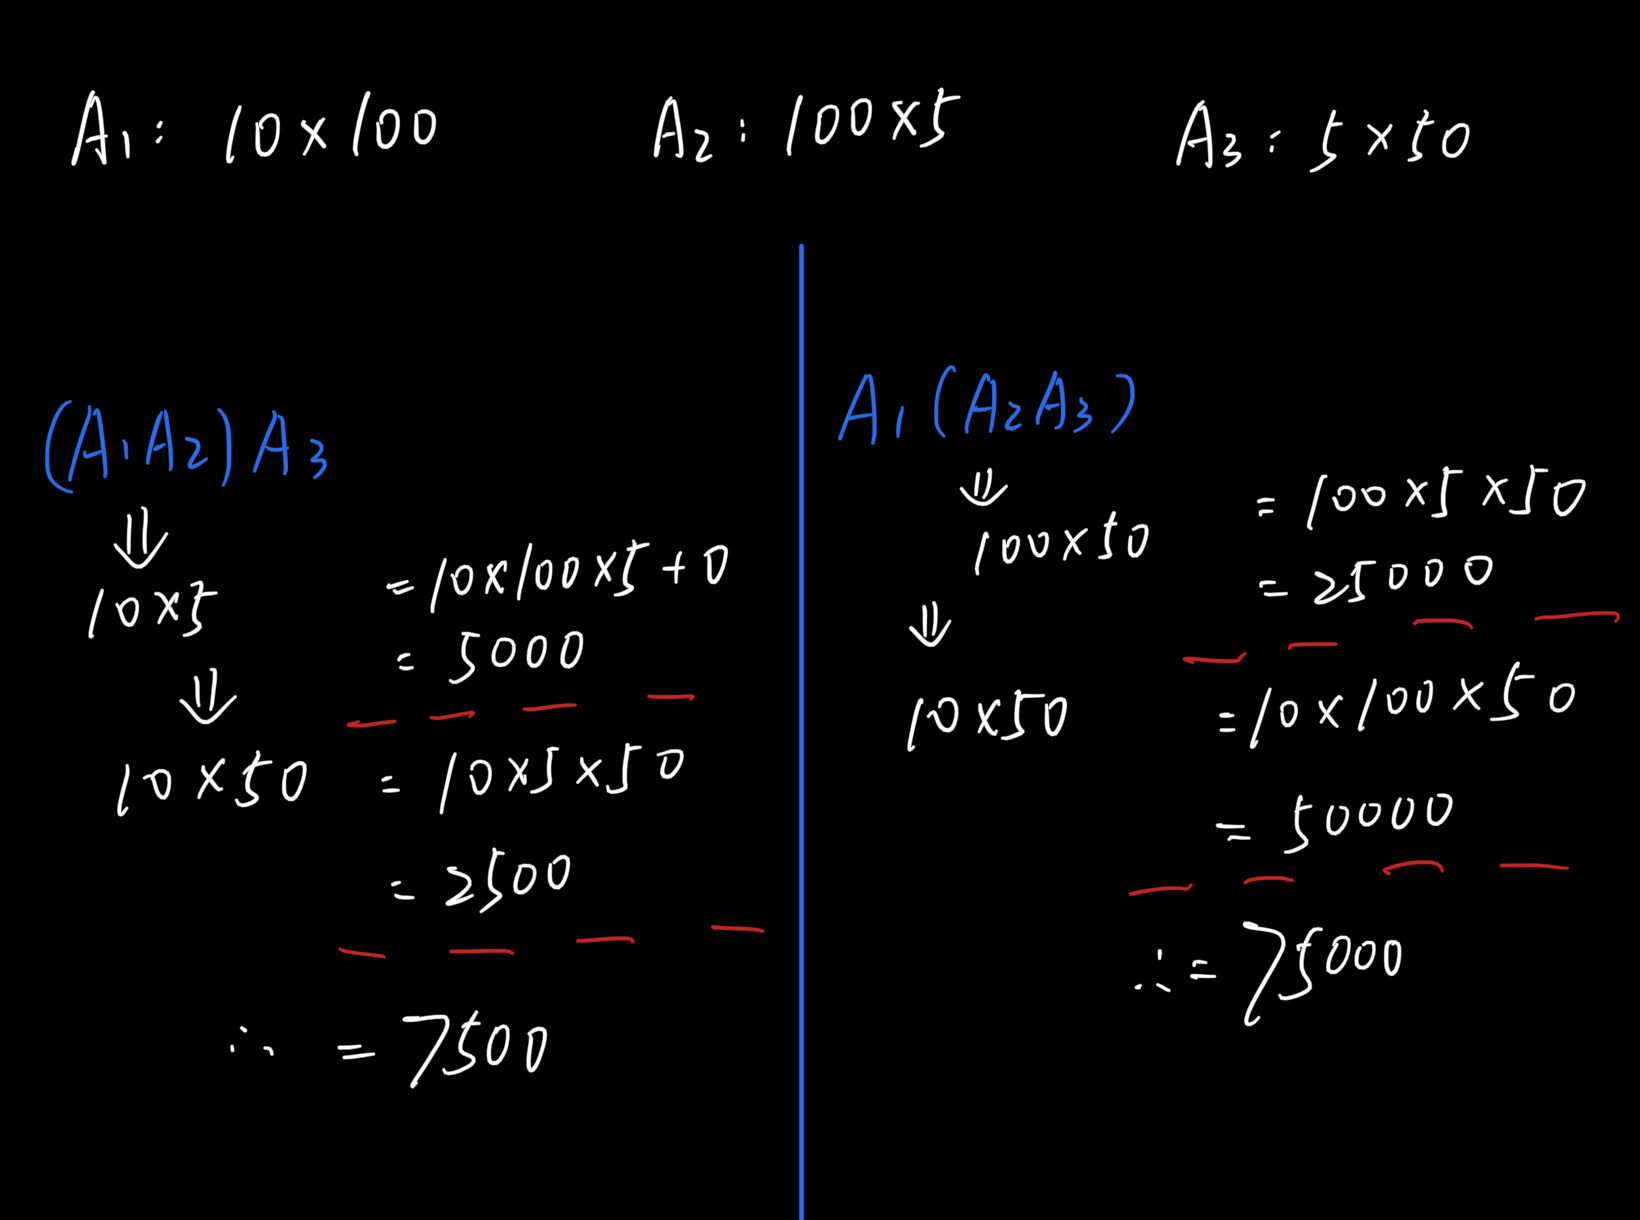 A1: 10×100
A2: 100×5
A3: 5×50
(A1A2)A3
⇓
10×5
=10×100×5+0
= 5000
⇓
10×50
= 10×5×50
= 2500
∴ = 7500
A1(A2A3)
⇓
100×50
= 100×5×50
= 25000
⇓
10×50
=10×100×50
= 50000
∴ = 75000